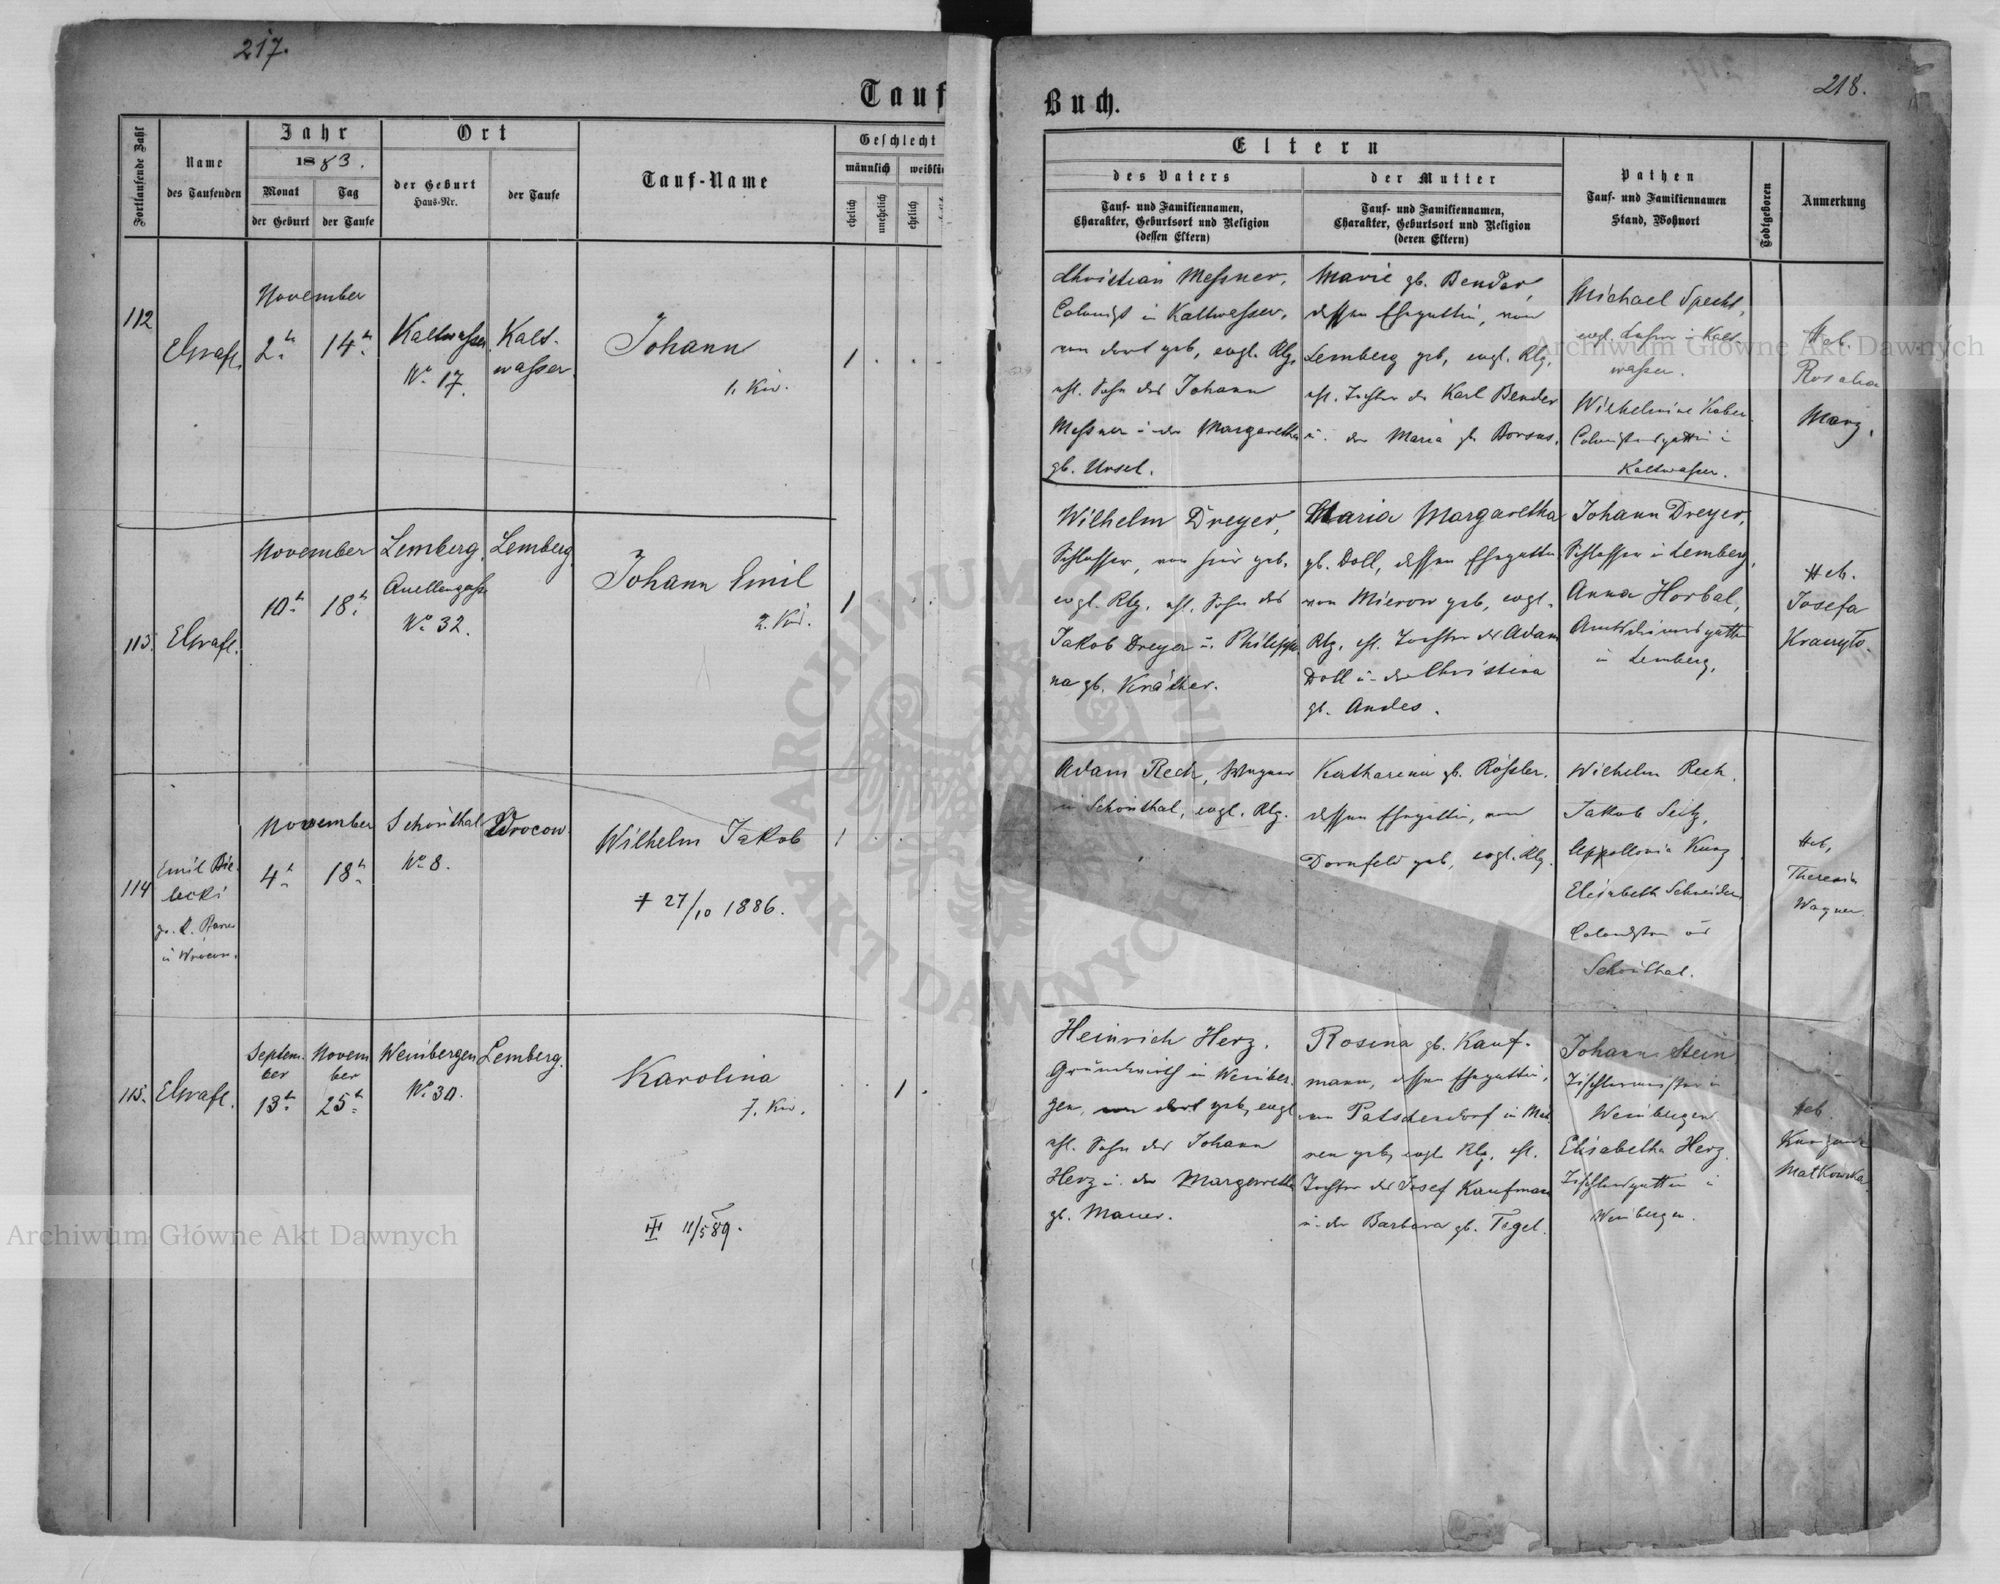 217.
Tauf
Fortlaufende Zahl
Name
des Taufenden
Jahr
1883.
Monat
der Geburt
Tag
der Taufe
Ort
der Geburt
Haus-Nr.
der Taufe
Tauf-Name
Geschlecht
männlich
weiblic
ehelich
unehelich
ehelich
112
November
2t
14t
Kaltwasser
No 17.
Kalt-
wasser.
Johann
1. Kind.
1
113.
November
10t
18t
Lemberg,
Quellengasse
No 32.
Lemberg
Johann Emil
2. Kind.
1
114
Emil Bie-
lecki
gr. k. Pfarrer
in Wrocow.
November
4t
18t
Schönthal
No 8.
Wrocow
Wilhelm Jakob
1
† 27/10 1886.
115.
Septem-
ber
13t
Novem
ber
25t
Weinbergen
No 30.
Lemberg.
Karolina
7. Kind.
1
11/5 89.
218.
Buch.
Eltern
des Vaters
Tauf- und Familiennamen,
Charakter, Geburtsort und Religion
(dessen Eltern)
der Mutter
Tauf- und Familiennamen,
Charakter, Geburtsort und Religion
(deren Eltern)
Pathen
Tauf- und Familiennamen
Stand, Wohnort
Todtgeboren
Anmerkung
Christian Meßner,
Colonist in Kaltwasser,
von dort geb, evgl. Rlg.
ehl. Sohn des Johann
Meßner u. der Margaretha
gb. Ursel.
Marie gb. Bender,
dessen Ehegattin, von
Lemberg geb, evgl. Rlg.
ehl. Tochter des Karl Bender
u. der Maria gb. Borsus.
Michael Specht,
evgl. Lehrer in Kalt-
wasser.
Wilhelmine Kober
Colonistensgattin in
Kaltwasser.
Heb.
Rosalia
Marz.
Wilhelm Dreyer,
Schlosser, von hier geb.
evgl. Rlg. ehl. Sohn des
Jakob Dreyer u. Philippi-
na gb. Kräther.
Maria Margaretha
gb. Doll, dessen Ehegattin
von Mierow geb, evgl.
Rlg. ehl. Tochter des Adam
Doll u. der Christina
gb. Andes.
Johann Dreyer,
Schlosser in Lemberg,
Anna Horbal,
Amtsdienersgattin
in Lemberg.
Heb.
Josefa
Adam Rech, Wagner
in Schönthal, evgl. Rlg.
Katharina gb. Rößler.
dessen Ehegattin, von
Dornfeld geb, evgl. Rlg.
Wilhelm Rech.
Jakob Seitz,
Appollonia Kunz
Elisabeth Schneider
Colonisten aus
Schönthal.
Heb,
Theresia
Wagner.
Heinrich Herz,
Grundwirth in Weinber-
gen, von dort geb, evgl
ehl. Sohn des Johann
Herz u. der Margaretha
gb. Mauer.
Rosina gb. Kauf-
mann, dessen Ehegattin,
von Patschendorf in Mäh-
ren geb, evgl. Rlg. ehl.
Tochter des Josef Kaufmann
u. der Barbara gb. Tegel.
Johann Stein
Tischlermeister in
Weinbergen
Elisabetha Herz.
Tischlersgattin in
Weinbergen.
Heb.
Matkowska.
Archiwum Główne Akt Dawnych
Archiwum Główne Akt Dawnych
ARCHIWUM GŁÓWNE AKT DAWNYCH